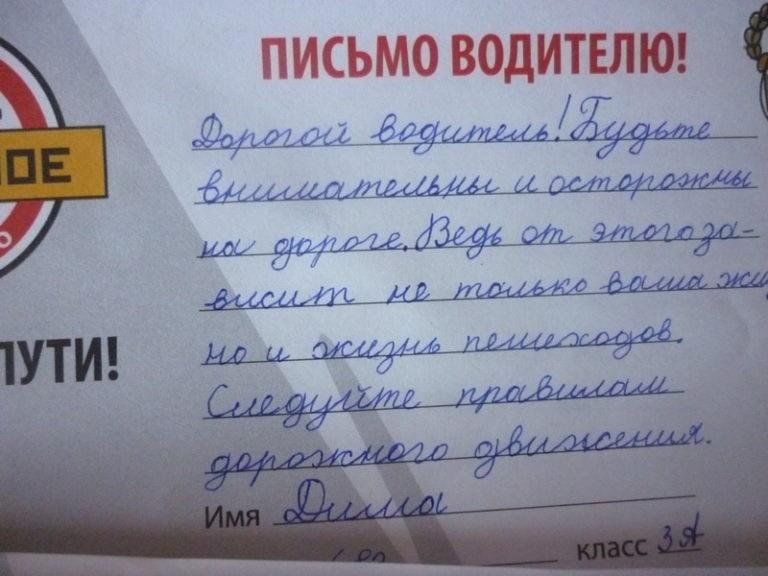 ПИСЬМО ВОДИТЕЛЮ!
Дорогой водитель! Будьте
внимательны и осторожны
на дороге. Ведь от этого за-
висит не только ваша
но и жизнь пешеходов.
Следуйте правилам
дорожного движения.
Имя Дима
класс 3 А
ПУТИ!